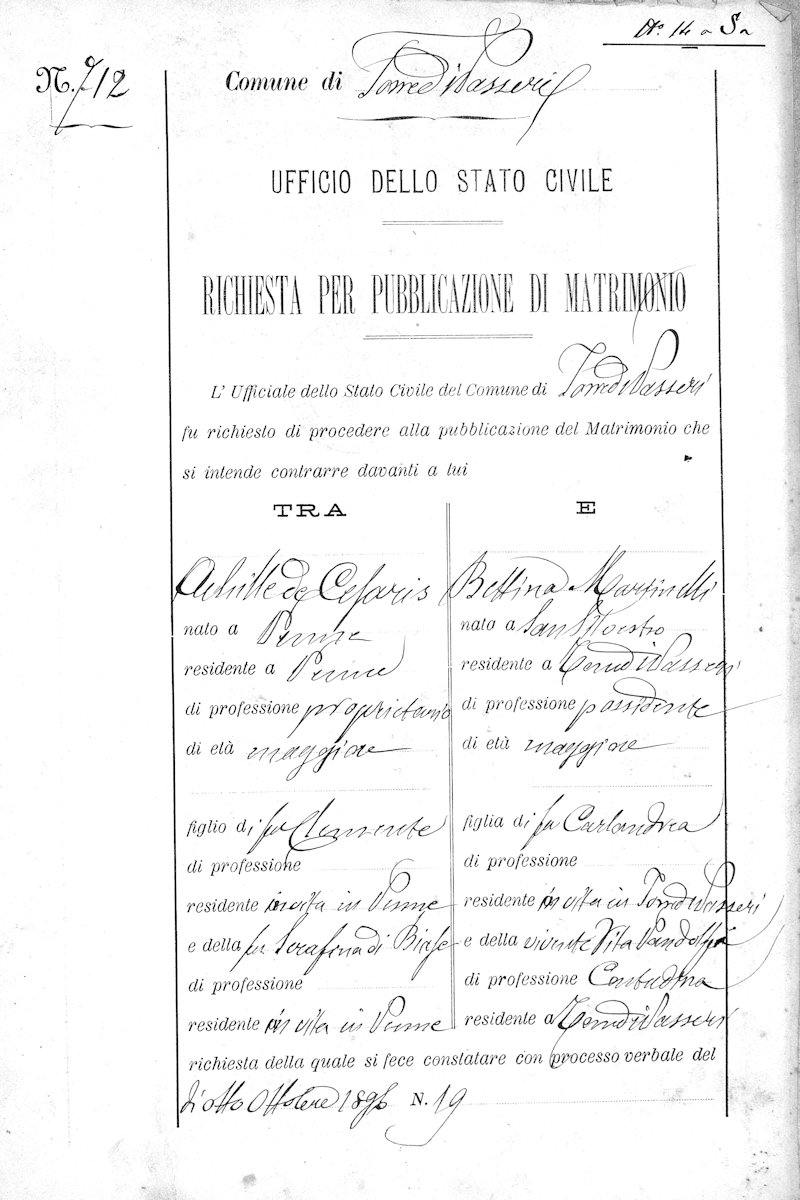 N. 712
Comune di Torre di Passeri
UFFICIO DELLO STATO CIVILE
RICHIESTA PER PUBBLICAZIONE DI MATRIMONIO
L' Ufficiale dello Stato Civile del Comune di Torre di Passeri
fu richiesto di procedere alla pubblicazione del Matrimonio che
si intende contrarre davanti a lui
TRA
Achille de Cesaris
nato a Penne
residente a Penne
di professione proprietario
di età maggiore
figlio di fu Clemente
di professione
residente in vita in Penne
e della fu Serafina di Biase
di professione
residente in vita in Penne
E
Bettina
nato a San Silvestro
residente a Torre di Passeri
di professione possidente
di età maggiore
figlia di fu Carlandrea
di professione
residente in vita in Torre di Passeri
e della vivente Vita
di professione Contadina
residente a Torre di Passeri
richiesta della quale si fece constatare con processo verbale del
di otto Ottobre N. 19